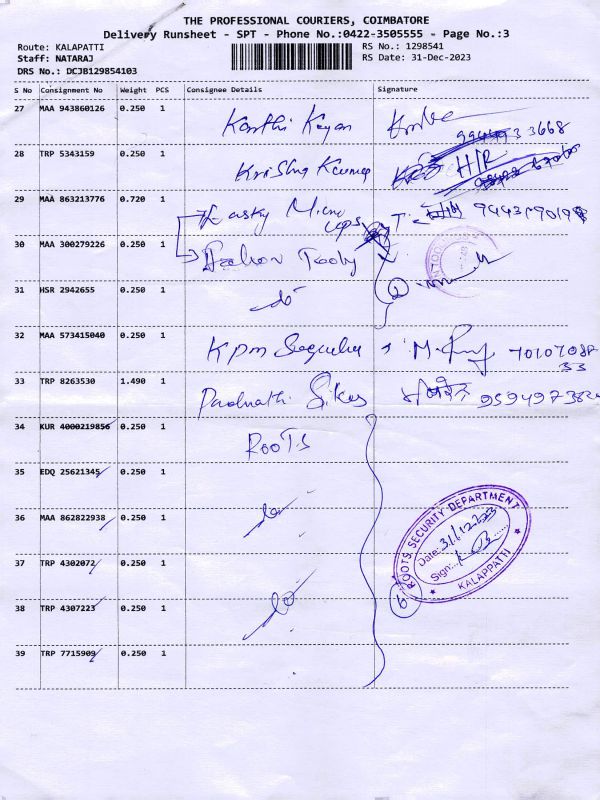 THE PROFESSIONAL COURIERS, COIMBATORE
Delivery Runsheet - SPT - Phone No.:0422-3505555 - Page No.:3
Route: KALAPATTI RS No.: 1298541
Staff: NATARAJ RS Date: 31-Dec-2023
DRS No.: DCJB129854103
S No Consignment No Weight PCS Consignee Details Signature
27 MAA 943860126 0.250 1 Karthi Keyan
28 TRP 5343159 0.250 1 Krishna Kumar H/R
29 MAA 863213776 0.720 1
30 MAA 300279226 0.250 1
31 HSR 2942655 0.250 1 do
32 MAA 573415040 0.250 1 Kpm
33 TRP 8263530 1.490 1
34 KUR 4000219856 0.250 1 ROOTS
35 EDQ 25621345 0.250 1
36 MAA 862822938 0.250 1 do
ROOTS SECURITY DEPARTMENT
Date: 31/12/23
Sign:
KALAPPATTI
6
37 TRP 4302072 0.250 1
38 TRP 4307223 0.250 1 do
39 TRP 7715909 0.250 1